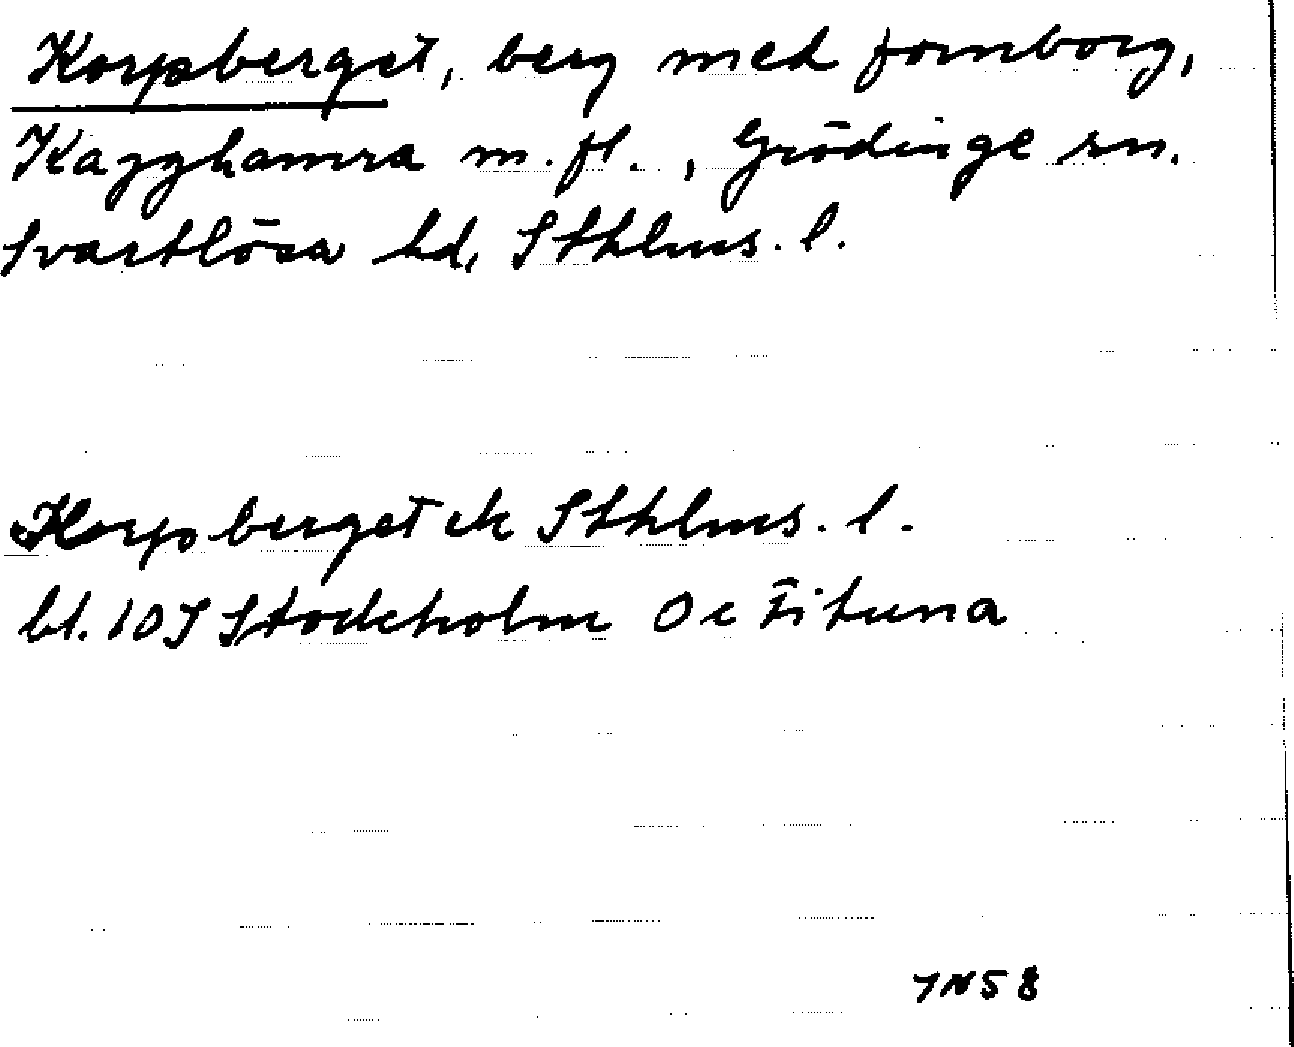 Korpberget, berg med fornborg,
Kagghamra m.fl., Grödinge sn.
Svartlösa hd, Sthlms. l.
Korpberget ek Sthlms. l.
bl. 10I Stockholm 0c Fituna
IN58